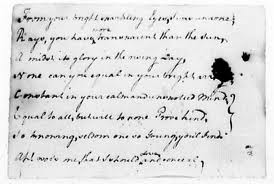 From your bright sparkling Eyes, I was undone;
Rays, you have more transparent than the Sun,
A midst its glory in the rising Day,
None can you equal in your bright
Constant in your calm and unspotted Mind;
Equal to all, but will to none Prove kind,
So knowing, seldom one so Young, you'l Find
Ah! woe's me, that I should Love and conceal